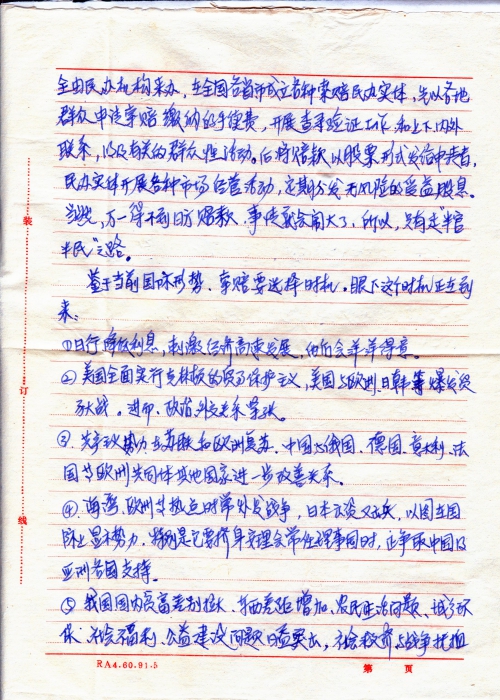 全由民办机构来办，在全国各省市成立各种索赔民办实体，先以各地
群众申请索赔缴纳的手续费，开展查录验证工作和上下、内外
联系，以及有关的群众性活动。后将偿款以股票形式发给申请者，
民办实体开展各种市场经营活动，定期分发无风险的受益股息。
当然，万一得不到日方赔款，事情就会闹大了，所以，只有走“半官
半民”之路。
鉴于当前国际形势，索赔要选择时机。眼下这个时机正在到
来：
①日行降低利息，刺激经济高速发展，他们会洋洋得意。
②美国全面实行克林顿的贸易保护主义，美国与欧洲、日韩等爆发贸
易大战。进而，政治、外交关系紧张。
③共产主义势力在苏联和欧洲复苏，中国与俄国、德国、意大利、法
国等欧洲共同体其他国家进一步改善关系。
④海湾、欧洲等热点时常外发战争，日本出资又出兵，以图在国
际上显示势力，特别是它要挤身安理会常任理事国时，正争取中国及
亚洲各国支持。
⑤我国国内贫富差别扩大，东西差距增加，农民生活问题、城乡环
保、社会福利、公益建设问题日益突出，社会救济与战争抚恤
装
订
线
RA4.60.91.5
第 页